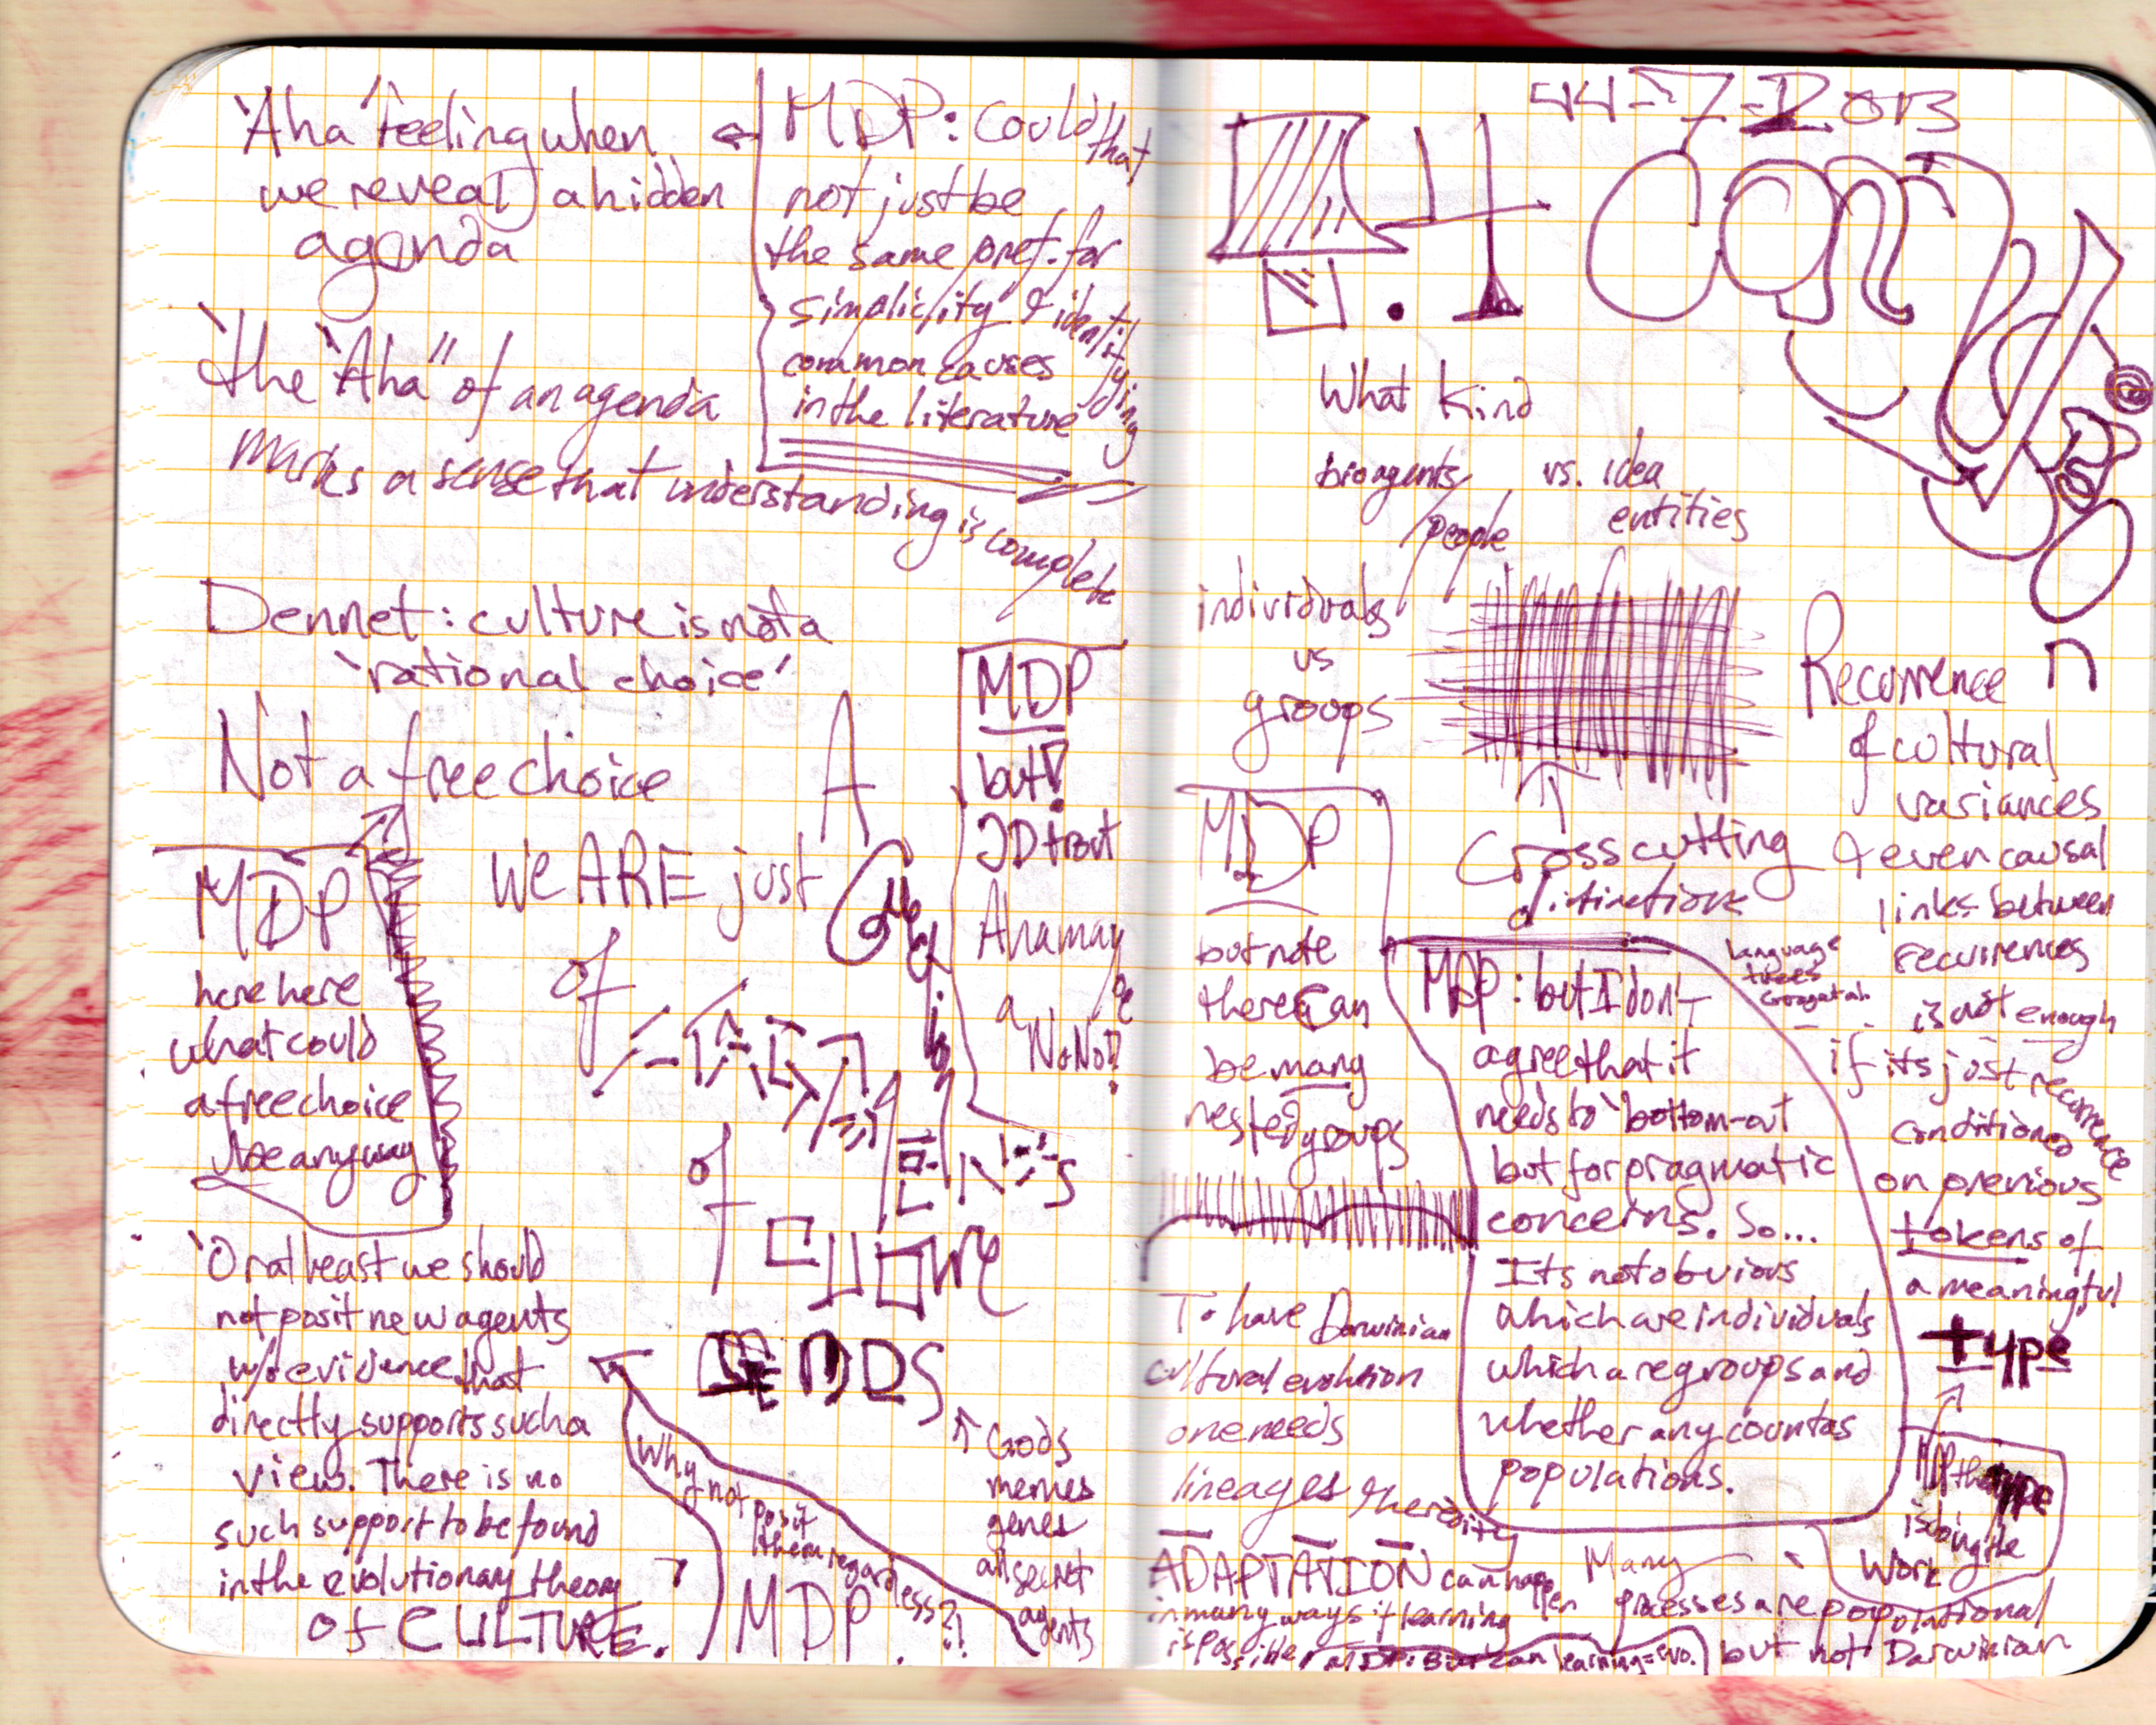 'Aha' feeling when
we reveal a hidden
agenda
MDP: Could that
not just be
the same pref. for
simplicity & identifying
common causes
in the literature
'the "Aha" of an agenda
marks a sense that understanding is complete
Dennet: culture is not a
'rational choice'
Not a free choice
MDP
here here
what could
a free choice
be anyway
A
We ARE just
of
of
MDP
but!
JD trout
Aha may
be
a NoNo!?
'Or at least we should
not posit new agents
w/o evidence that
directly supports such a
view. There is no
such support to be found
in the evolutionary theory
of CULTURE.
Why not posit
them regardless?!
MDP
↑ Gods
memes
genes
all secret
agents
44-7-2013
Cont
What Kind
bio agents/ vs. idea
people entities
individuals
vs
groups
Cross cutting
distinctions
MDP
but note
there can
be many
nested groups
MDP: but I don't
agree that it
needs to 'bottom-out
but for pragmatic
concerns. So...
Its not obvious
which are individuals
which are groups and
whether any count as
populations.
Recurrence
of cultural
variances
& even causal
links between
recurrences
is not enough
if its just recurrence
conditioned
on previous
tokens of
a meaningful
type
language
trees
MDP the type
is doing the
work
To have Darwinian
cultural evolution
one needs
lineages & heredity
ADAPTATION can happen
in many ways if learning
is possible
MDP: But can learning = evo.
Many
processes are populational
but not Darwinian